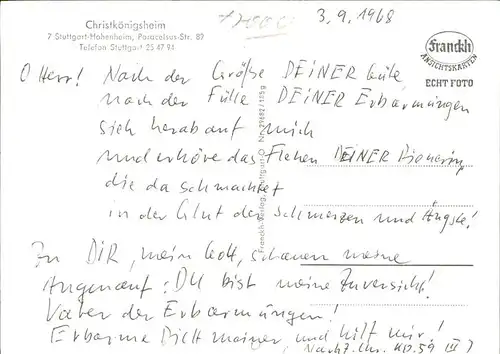 Christkönigsheim
7 Stuttgart-Hohenheim, Paracelsus-Str. 89
Telefon Stuttgart 25 47 94
3. 9. 1968
Franckh
ANSICHTSKARTEN
ECHT FOTO
O Herr! Nach der Größe DEINER Güte
nach der Fülle DEINER Erbarmungen
sieh herab auf mich
und erhöre das Flehen DEINER Dienerin,
die da schmachtet
in der Glut der Schmerzen und Ängste!
Zu DIR, mein Gott, schauen meine
Augen auf: DU bist meine Zuversicht!
Vater der Erbarmungen!
Erbarme Dich meiner, und hilf mir!
Franckh-Verlag, Stuttgart-O Nr. 29682/155g